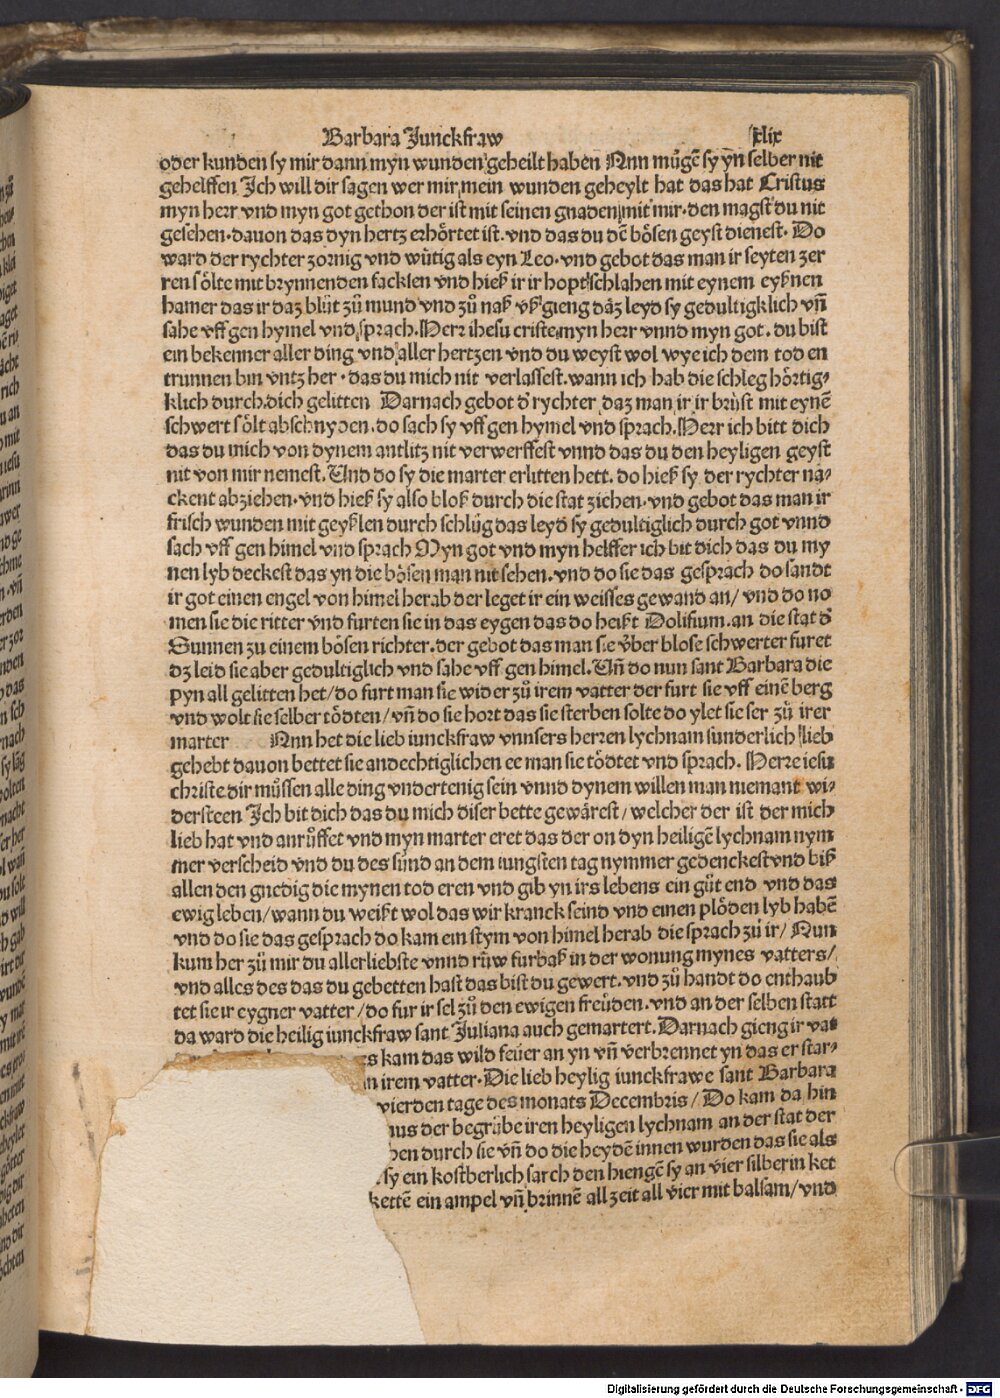 Barbara Junckfraw xlix
oder kunden sy mir dann myn wunden geheilt haben Nnn mügē sy yn selber nit
gehelffen. Ich will dir sagen wer mir mein wunden geheylt hat das hat Cristus
myn herr vnd myn got gethon der ist mit seinen gnaden mit mir. den magst du nit
gesehen. dauon das dyn hertz erhörtet ist. vnd das du dē bösen geyst dienest. Do
ward der rychter zornig vnd wütig als eyn Leo. vnd gebot das man ir seyten zer
ren sölte mit brynnenden facklen vnd hieß ir ir hopt schlahen mit eynem eyßnen
hamer das ir daz blüt zů mund vnd zů naß vß gieng dāz leyd sy gedultigklich vñ
sahe vff gen hymel vnd sprach. Herr ihesu criste myn herr vnnd myn got. du bist
ein bekenner aller ding vnd aller hertzen vnd du weyst wol wye ich dem tod en
trunnen bin vntz her. das du mich nit verlassest. wann ich hab die schleg hörtig⸗
klich durch dich gelitten Darnach gebot d' rychter daz man ir ir brüst mit eynē
schwert sölt abschnyden. do sach sy vff gen hymel vnd sprach. Herr ich bitt dich
das du mich von dynem antlitz nit verwerffest vnnd das du den heyligen geyst
nit von mir nemest. Und do sy die marter erlitten hett. do hieß sy der rychter na⸗
ckent abziehen. vnd hieß sy also bloß durch die stat ziehen. vnd gebot das man ir
frisch wunden mit geyßlen durch schlüg das leyd sy gedultiglich durch got vnnd
sach vff gen himel vnd sprach Myn got vnd myn helffer ich bit dich das du my
nen lyb deckest das yn die bösen man nit sehen. vnd do sie das gesprach do sandt
ir got einen engel von himel herab der leget ir ein weisses gewand an/ vnd do no
men sie die ritter vnd furten sie in das eygen das do heißt Dolisium. an die stat d'
Sunnen zu einem bösen richter. der gebot das man sie über blose schwerter furet
dz leid sie aber gedultiglich vnd sahe vff gen himel. Uñ do nun sant Barbara die
pyn all gelitten het/ do furt man sie wider zů irem vatter der furt sie vff einē berg
vnd wolt sie selber tödten/ vñ do sie hort das sie sterben solte do ylet sie ser zů irer
marter Nnn het die lieb iunckfraw vnnsers herren lychnam sunderlich lieb
gehebt dauon bettet sie andechtiglichen ee man sie tödtet vnd sprach. Herre iesu
christe dir müssen alle ding vndertenig sein vnnd dynem willen man niemant wi⸗
dersteen Ich bit dich das du mich diser bette gewärest/ welcher der ist der mich
lieb hat vnd anrůffet vnd myn marter eret das der on dyn heiligē lychnam nym
mer verscheid vnd du des sünd an dem iungsten tag nymmer gedenckest vnd biß
allen den gnedig die mynen tod eren vnd gib yn irs lebens ein güt end vnd das
ewig leben/ wann du weißt wol das wir kranck seind vnd einen plöden lyb habē
vnd do sie das gesprach do kam ein stym von himel herab die sprach zů ir/ Nun
kum her zů mir du allerliebste vnnd růw furbaß in der wonung mynes vatters/
vnd alles des das du gebetten hast das bist du gewert. vnd zů handt do enthaub
tet sie ir eygner vatter/ do fur ir sel zů den ewigen freüden. vnd an der selben statt
da ward die heilig iunckfraw sant Juliana auch gemartert. Darnach gieng ir vat
es kam das wild feüer an yn vñ verbrennet yn das er star⸗
n irem vatter. Die lieb heylig iunckfrawe sant Barbara
vierden tage des monats Decembris/ Do kam da hin
nus der begrübe iren heyligen lychnam an der stat der
hen durch sie vñ do die heydē innen wurden das sie als
sy ein kostberlich sarch den hiengē sy an vier silberin ket
kettē ein ampel vñ brinnē all zeit all vier mit balsam/ vnd
Digitalisierung gefördert durch die Deutsche Forschungsgemeinschaft - DFG